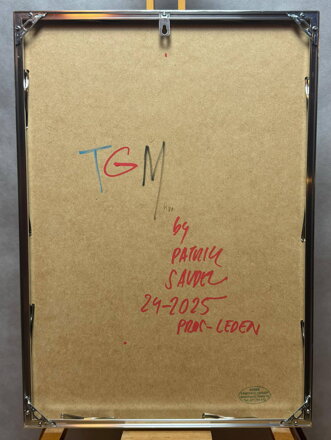 TGM
by
PATRICK
SAUDEK
24-2025
PROS-LEDEN